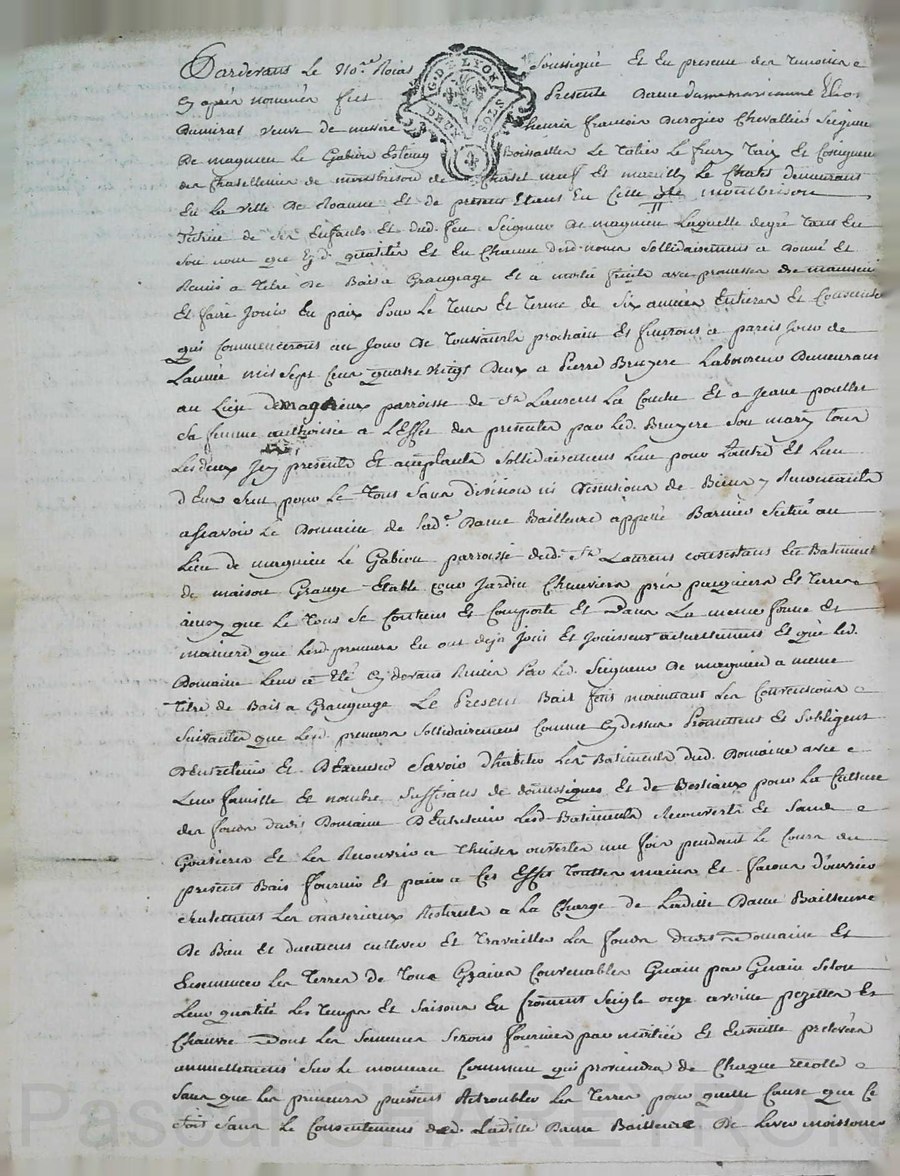 Pardevant Le No.re Roial Soussigné Et En presence des Temoins
Cy après nommés fut Presente Dame dame marianne
Dumirat veuve de messire henrin françois Durozier Chevallier Seigneur
De magnieu Le Gabion Estaing Boissailles Le Palais Le fieu Et Coseigneur
des Chatellenies de montbrison de Chatel neuf Et mareilly Le Chatel demeurant
En La ville De Roanne Et de present Etant En Cette ville montbrison
Tutrice de ses Enfants Et dud. feu Seigneur De magnieu Laquelle degré tant En
Son nom que Esd. qualités Et En Chacun desd. noms Sollidairement a donné Et
Remis a Titre de Bail a Grangeage Et a moitié fruits avec promesses de maintenir
Et faire Jouir En paix Pour Le Tems Et Terme de Six années Entieres Et Consecutives
qui Commenceront au Jour de Toussaints prochain Et finiront a pareil Jour de
Lannée mil Sept Cent quatre Vingt Deux a Pierre Bruyere Laboureur Demeurant
au Lieu de magnieux parroisse de St. Laurens La Conche Et a Jeane
Sa femme authorisée a L'Effet des presentes par led. Bruyere Son mary tous
Les deux Icy presents Et acceptants Sollidairement L'un pour L'autre Et L'un
d'Eux Seul pour Le Tout Sans division ni discution de Biens y Renonçants
assavoir Le Domaine de Lad.e Dame Bailleure appellé Barnier Scitué au
Lieu de magnieu Le Gabion parroisse dud. St. Laurens consistant En Batiments
de maison Grange Etable Cour Jardin Chenviers prés paquiers Et Terres
ainsy que Le Tout Se Contient Et Comporte Et Dans La meme forme Et
maniere que Lesd. preneurs En ont deja Jouis Et Jouissent actuellement Et que led.
Domaine Leur a Eté Cy devant Remis Par led. Seigneur De magnieu a meme
Titre de Bail a Grangeage Le Present Bail fait moienant Les Conventions
Suivantes que Lesd. preneurs Sollidairement Comme Cy dessus Promettent Et Sobligent
D'Entretenir Et D'Executer Savoir D'habiter Les Batiments dud. Domaine avec
Leur famille Et nombre Suffisant de domestiques Et de Bestiaux pour La Culture
des fonds dudit Domaine D'Entretenir Lesd. Batiments Recouverts Et Sans
Goutieres Et Les Recouvrir a Thuiles ouvertes une fois pendant Le Cours du
present Bail fournir Et paier a Cet Effet Toutes mains Et facons d'ouvriers
Seulement Les materieaux Restants a La Charge de Laditte Dame Bailleure
De Bien Et duement cultiver Et Travailler Les fonds dudit Domaine Et
Ensemencer Les Terres de Tous Grains Convenables Guain par Guain Selon
Leur qualité Les Temps Et Saisons En froment Seigle orge avoine pezettes Et
Chanvre Dont Les Semences Seront fournies par moitiée Et Ensuitte prelevées
annuellement Sur Le monceau Commun qui proviendra de Chaque recolte
Sans que Les preneurs puissent Retroubler Les Terres pour quelle Cause que Ce
Soit Sans Le Consentement de Laditte Dame Bailleure De Lever moissoner
G. DE LYON
DEUX SOLS
Pascal CHAREYRON